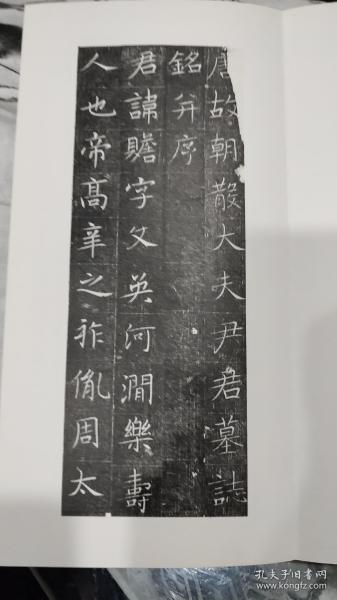 唐故朝散大夫尹君墓誌
銘并序
君諱贍字文英河澗樂壽
人也帝高辛之祚胤周太
孔夫子旧书网